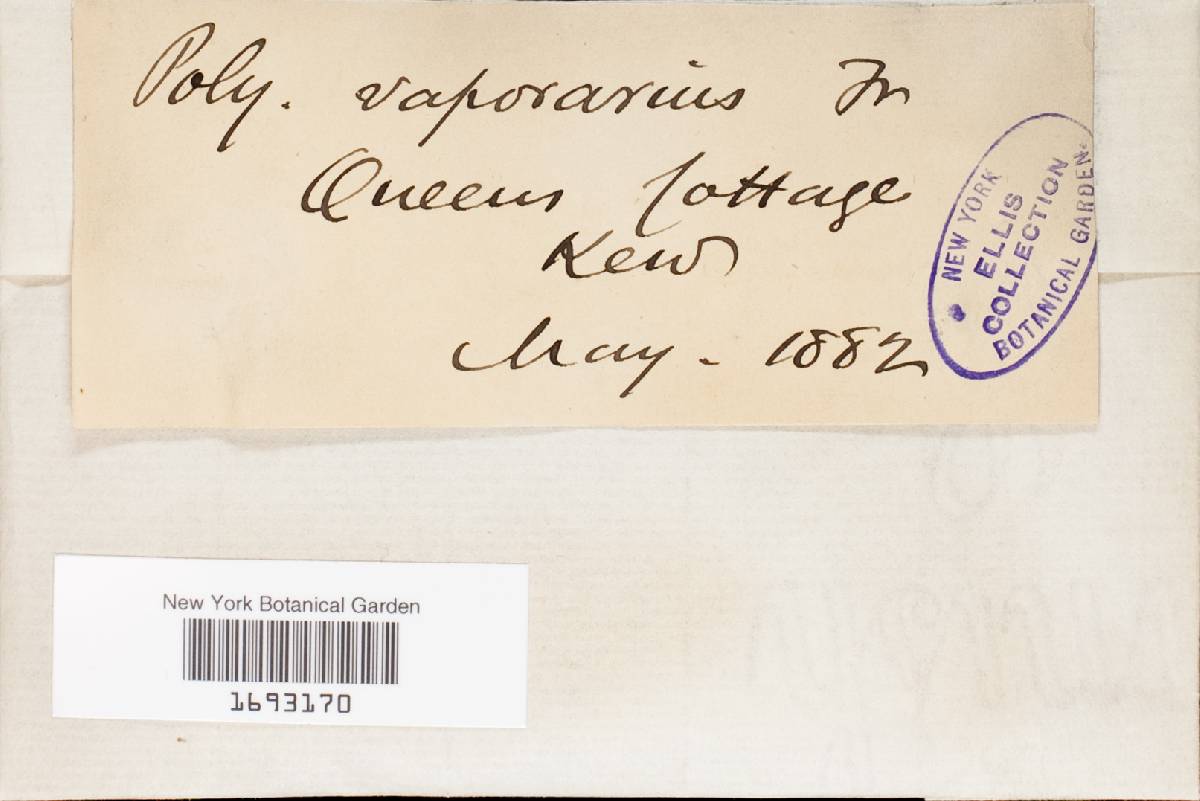 Poly. vaporarius Fr
Queens Cottage
Kew
May - 1882
NEW YORK
ELLIS
COLLECTION
BOTANICAL GARDEN
New York Botanical Garden
1693170